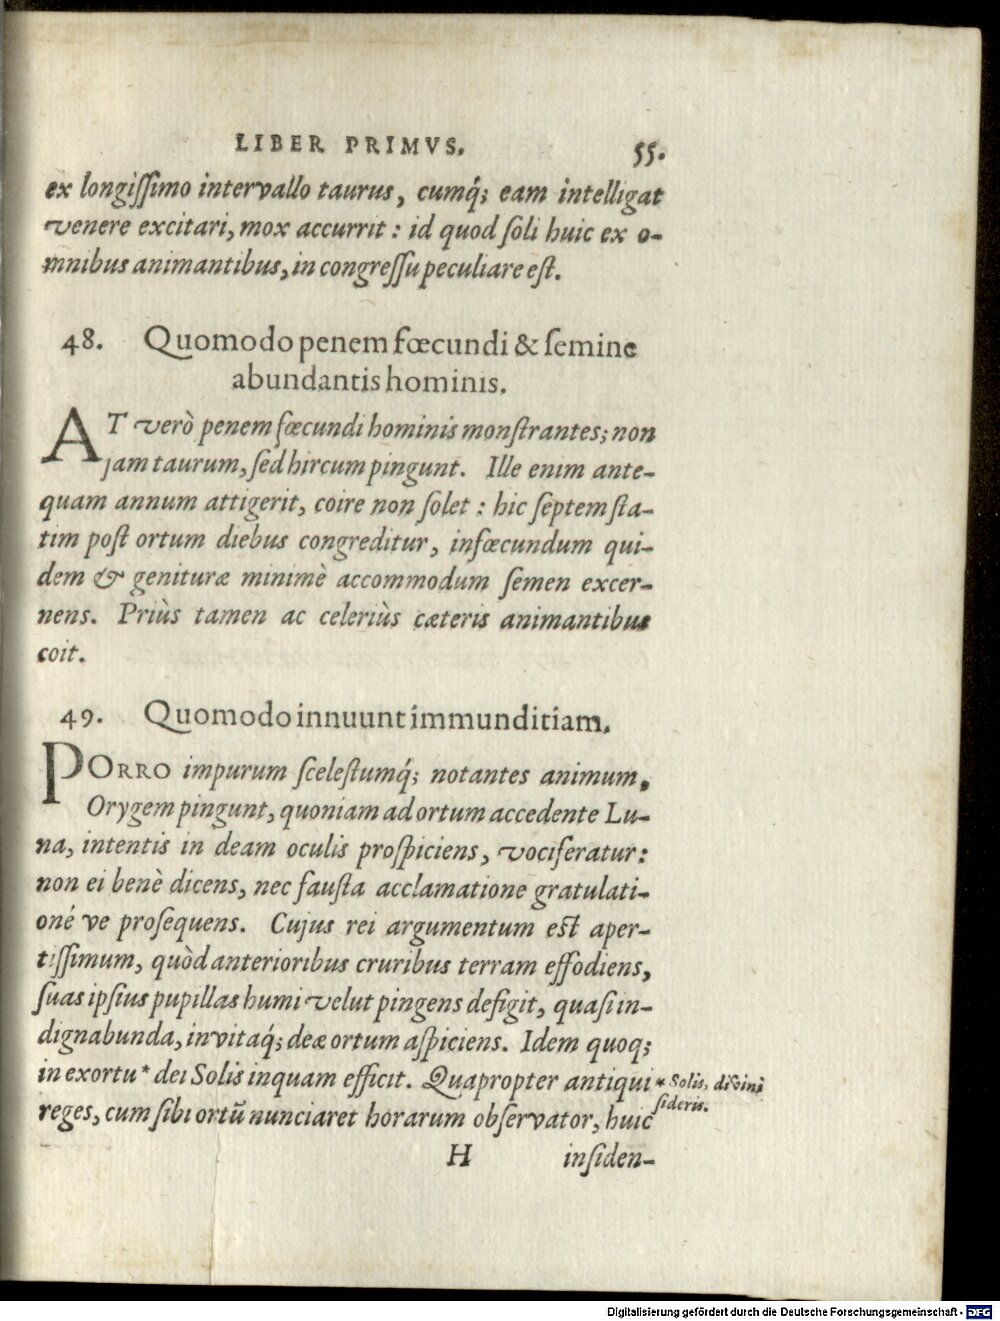 LIBER PRIMVS. 55.
ex longiſſimo intervallo taurus, cumq́; eam intelligat
venere excitari, mox accurrit: id quod ſoli huic ex o-
mnibus animantibus, in congreſſu peculiare eſt.
48. Quomodo penem fœcundi & ſemine
abundantis hominis.
AT verò penem fœcundi hominis monſtrantes; non
jam taurum, ſed hircum pingunt. Ille enim ante-
quam annum attigerit, coire non ſolet: hic ſeptem ſta-
tim poſt ortum diebus congreditur, infœcundum qui-
dem & genituræ minimè accommodum ſemen excer-
nens. Priùs tamen ac celeriùs cæteris animantibus
coit.
49. Quomodo innuunt immunditiam.
PORRO impurum ſceleſtumq́; notantes animum,
Orygem pingunt, quoniam ad ortum accedente Lu-
na, intentis in deam oculis proſpiciens, vociferatur:
non ei benè dicens, nec fauſta acclamatione gratulati-
oné ve proſequens. Cujus rei argumentum est aper-
tiſſimum, quòd anterioribus cruribus terram effodiens,
ſuas ipſius pupillas humi velut pingens defigit, quaſi in-
dignabunda, invitaq́; deæ ortum aſpiciens. Idem quoq;
in exortu * dei Solis inquam efficit. Quapropter antiqui
* Solis, divini
ſideris.
reges, cum ſibi ortū nunciaret horarum obſervator, huic
H inſiden-
Digitalisierung gefördert durch die Deutsche Forschungsgemeinschaft - DFG